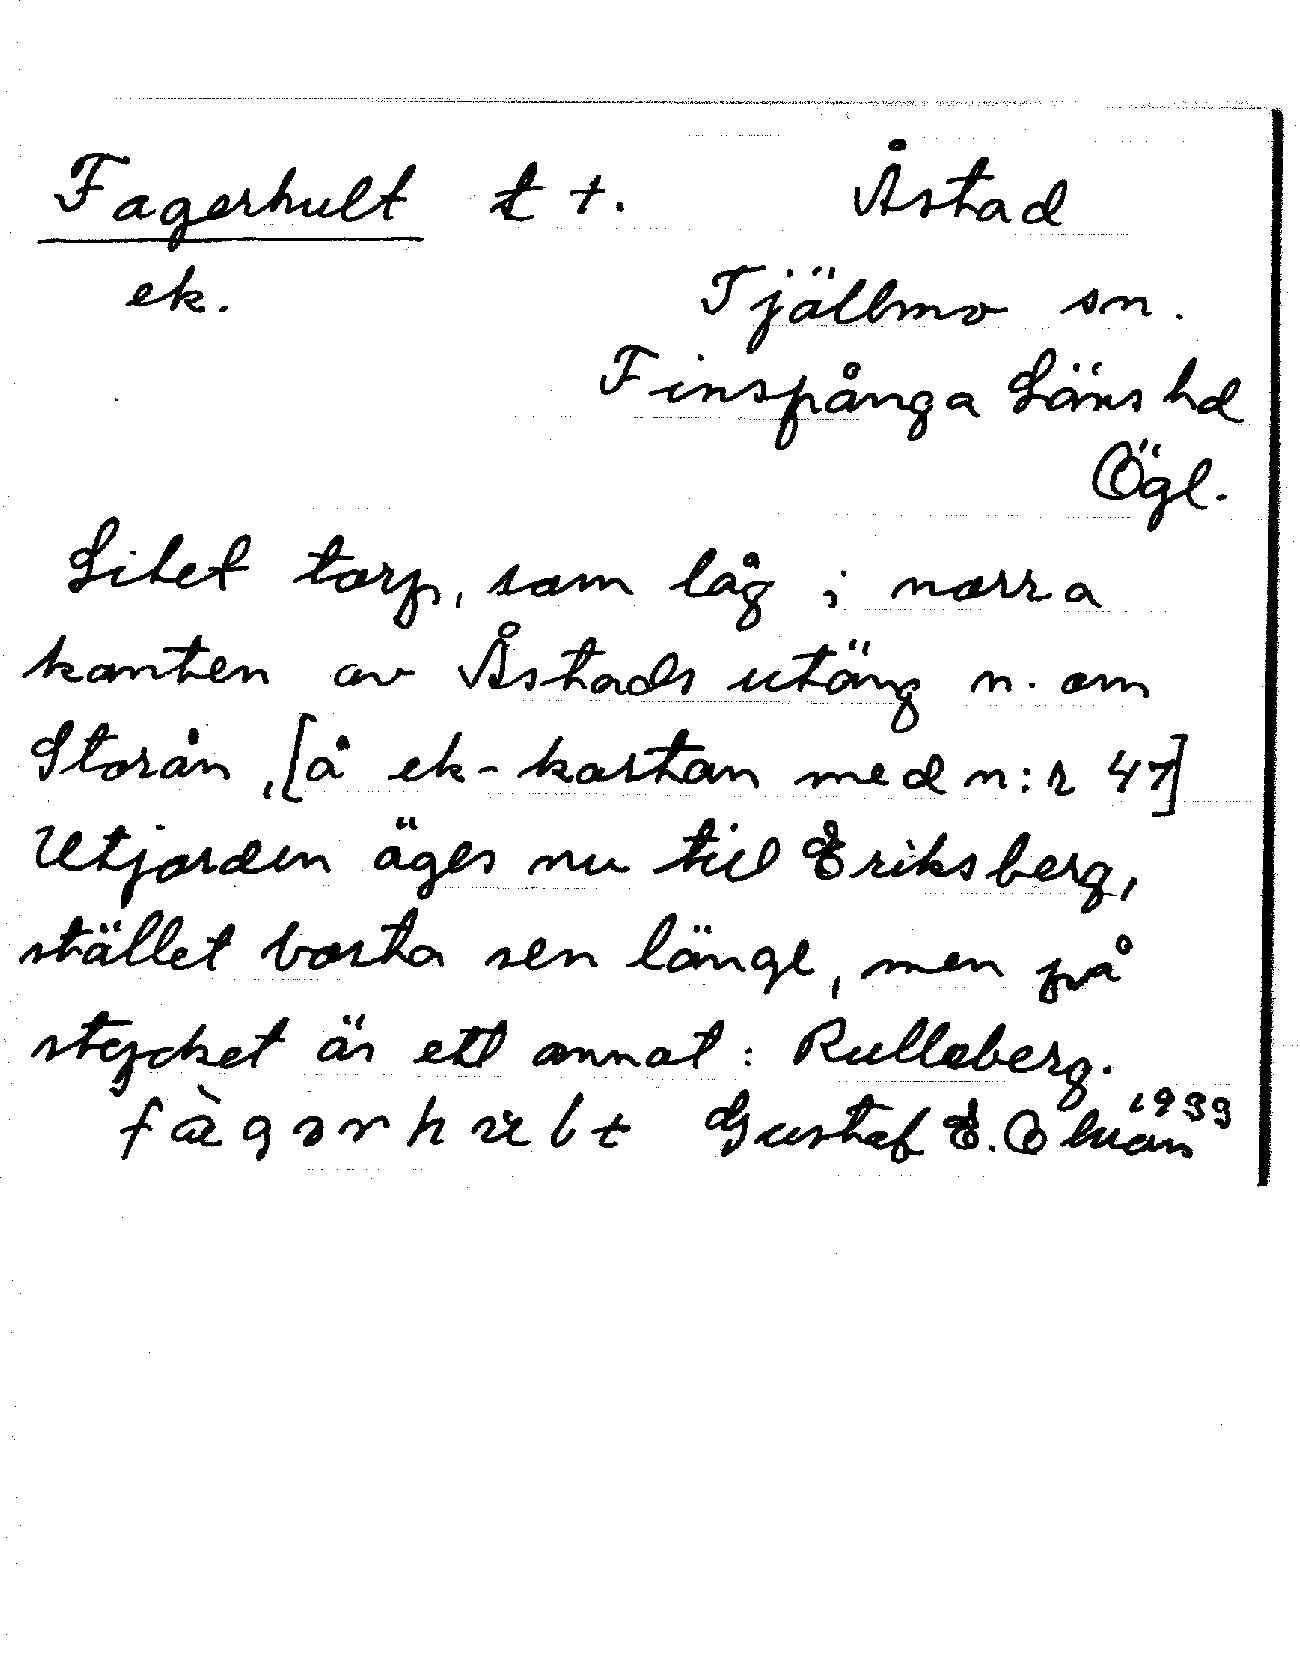 Fagerhult t +. Åstad
ek. Tjällmo sn.
Finspånga Läns hd
Ögl.
Litet torp, som låg i norra
kanten av Åstads utäng n. om
Storån, [å ek-kartan med n:r 47]
Utjorden äges nu till Eriksberg,
stället borta sen länge, men på
stycket är ett annat: Rulleberg.
Gustaf E. 1939